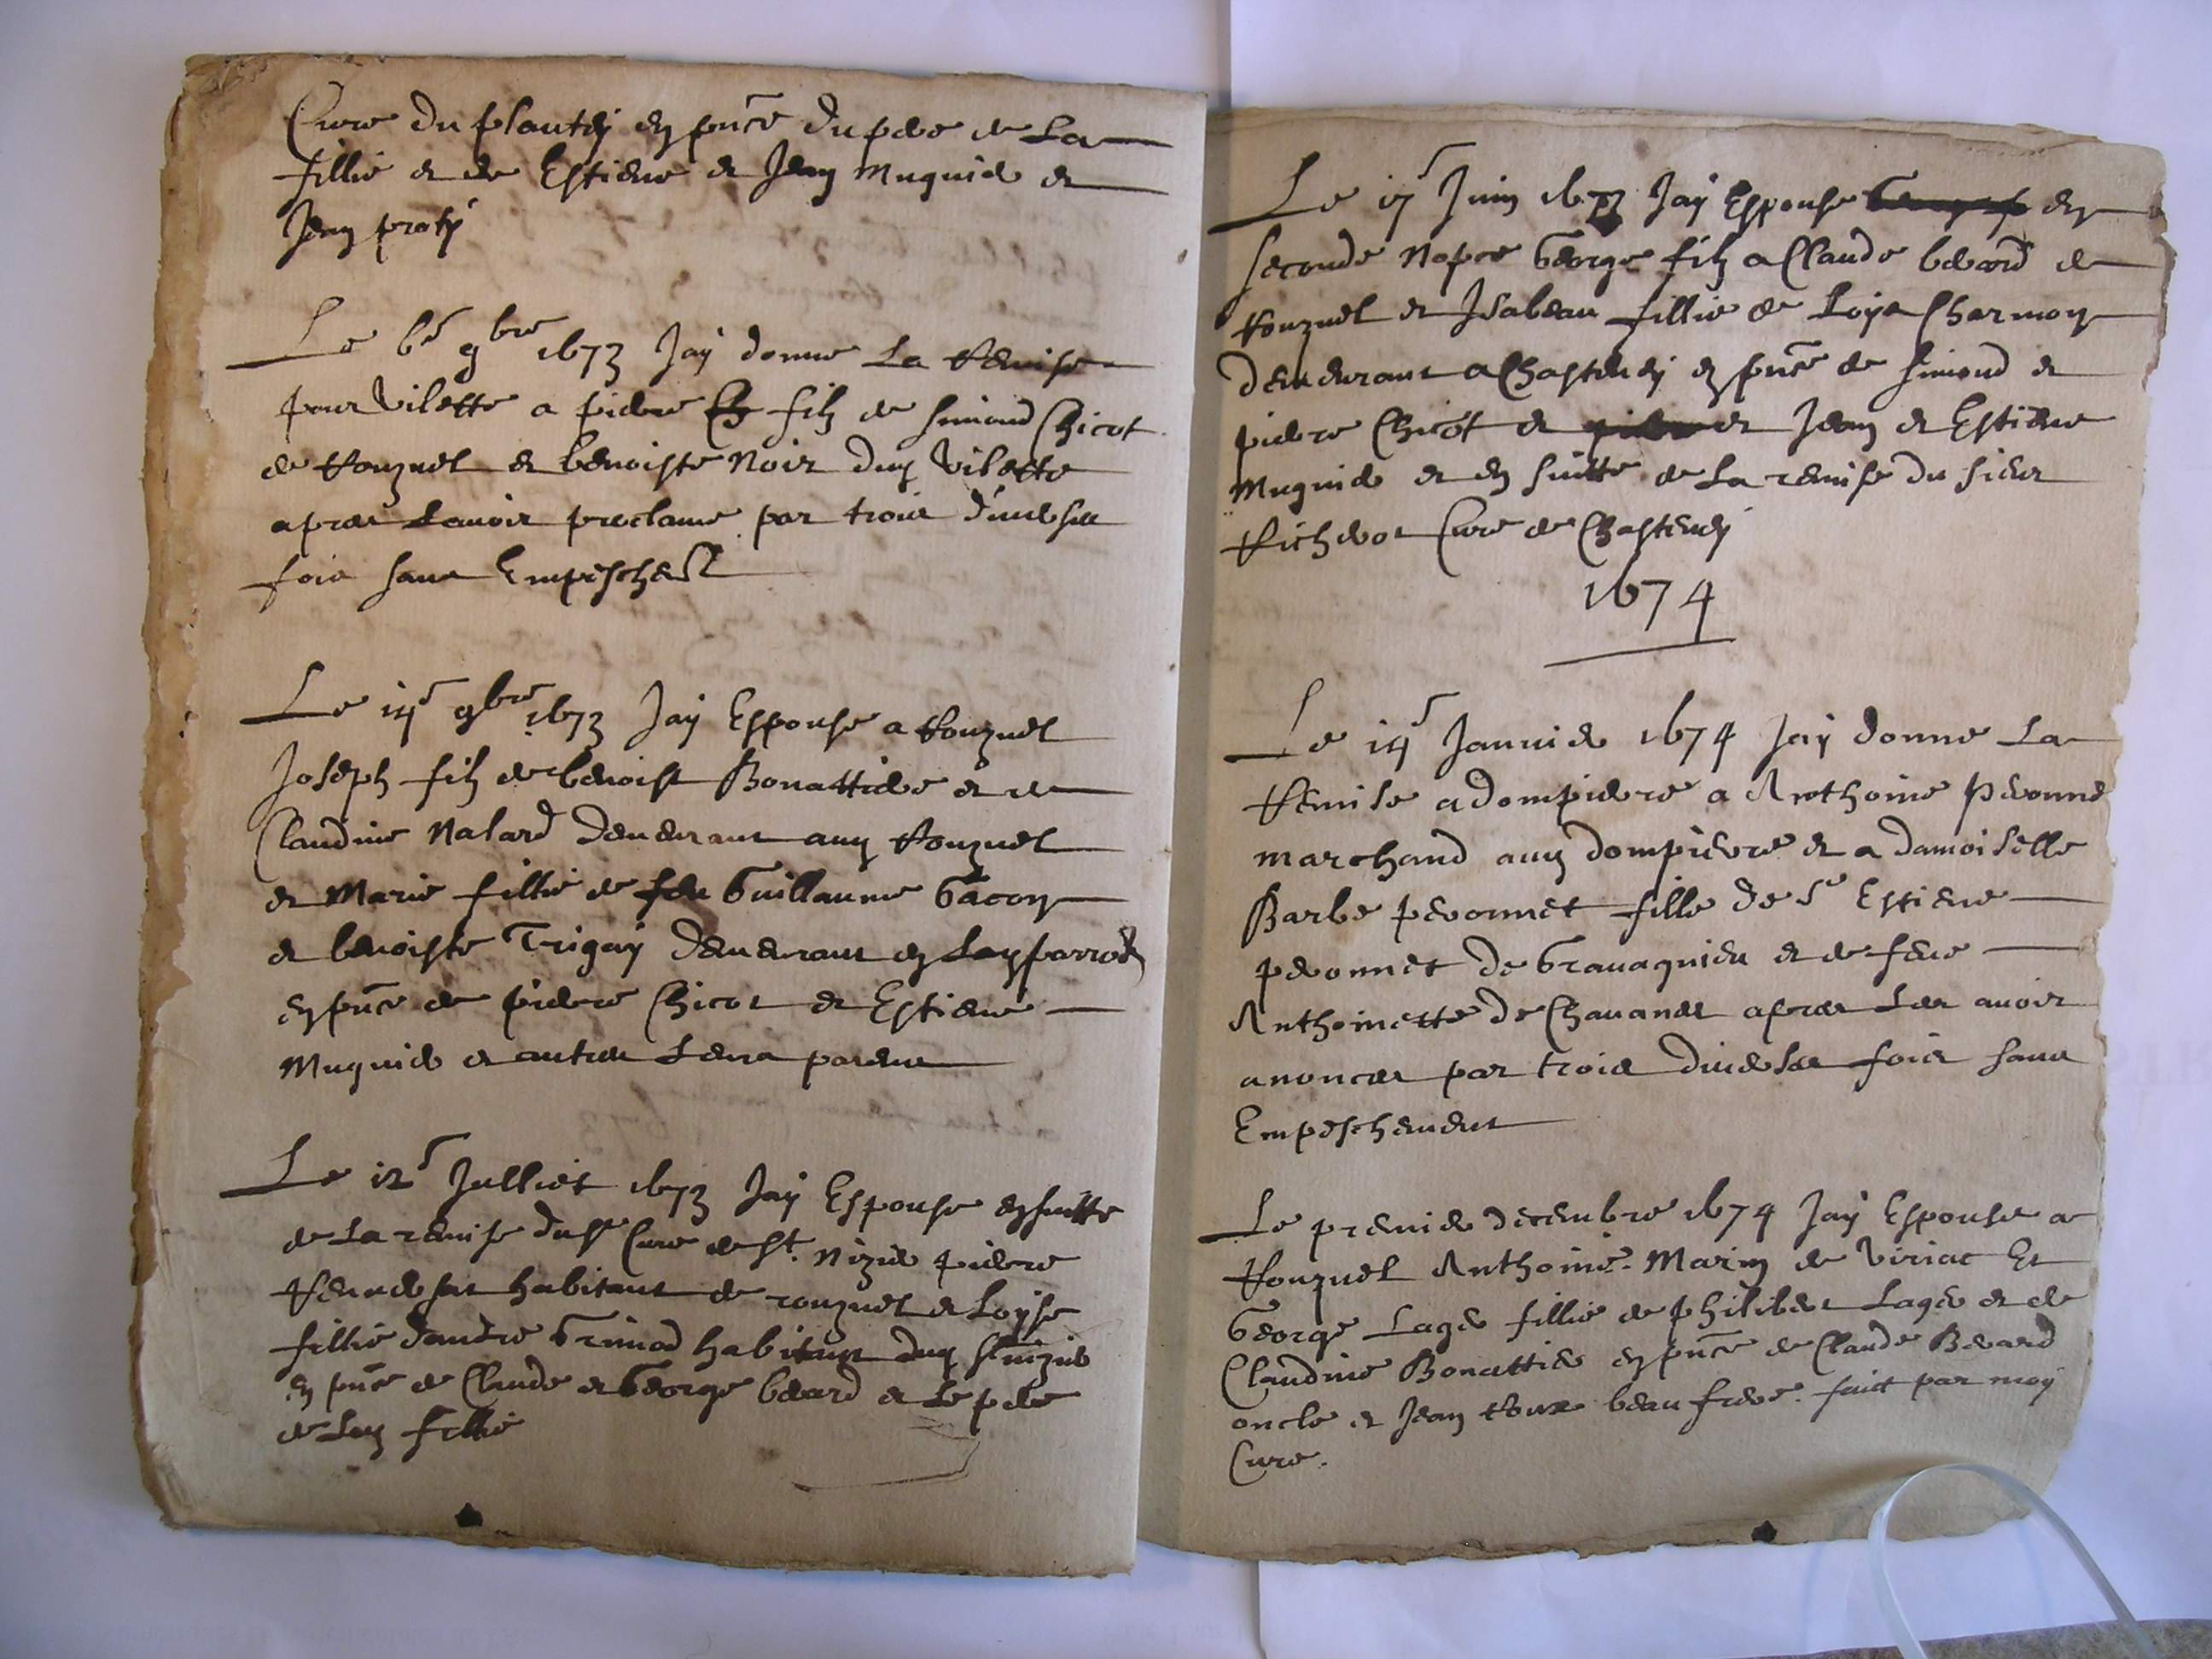 Cure du plantey en pnce du pere de La
fillie et de Estiene et Jean Muguie et
Jean praty
Le 6e 9bre 1673 Jay donne La Remise
pour Vilette a pierre Ch filz de Simond Chicot
de Ronzuel et benoiste Noir duy Vilette
apres Lavoir proclame par trois diverses
fois sans Empeschemt
Le 14e 9bre 1673 Jay Espouse a Ronzuel
Joseph filz de benoist Bonattier et de
Claudine Nalard demeurant auy Ronzuel
et Marie fillie de feu Guillaume Gacon
et benoiste Trigay demeurant en Lay parroe
en pnce de pierre Chicot et Estiene
Muguie et autres Leurs parens
Le 12e Julliet 1673 Jay Espouse en suitte
de La remise du Sr Cure de St. Nizie pierre
habitant de ronzuel et Loyse
fillie dandre Grimod habitant duy St nizie
en pnce de Claude et George beard et Le pere
de Lay fillie
Le 17e Juin 1673 Jay Espouse en
seconde Nopce George filz a Claude beard de
Ronzuel et Isabeau fillie de Loys Charmoy
demeurant a Chasteney en pnce de Simond et
pierre Chicot et pierre et Jean et Estiene
Muguie et en suitte de La remise du sieur
Richerot Cure de Chasteney
1674
Le 14e Janvier 1674 Jay donne La
Remise a dompierre a Anthoine pevonne
marchand auy dompierre et a damoiselle
Barbe pevonnet fille de Sr Estiene
pevonnet de Gravagnieu et de feue
Anthoinette de Chavanes apres Les avoir
anonces par trois diverses fois sans
Empeschement
Le premier decembre 1674 Jay Espouse a
Ronzuel Anthoine Marin de Viriac Et
George Lager fillie de philibert Lager et de
Claudine Bonattier en pnce de Claude Beard
oncle et Jean Roux beau frere. faict par moy
Cure.